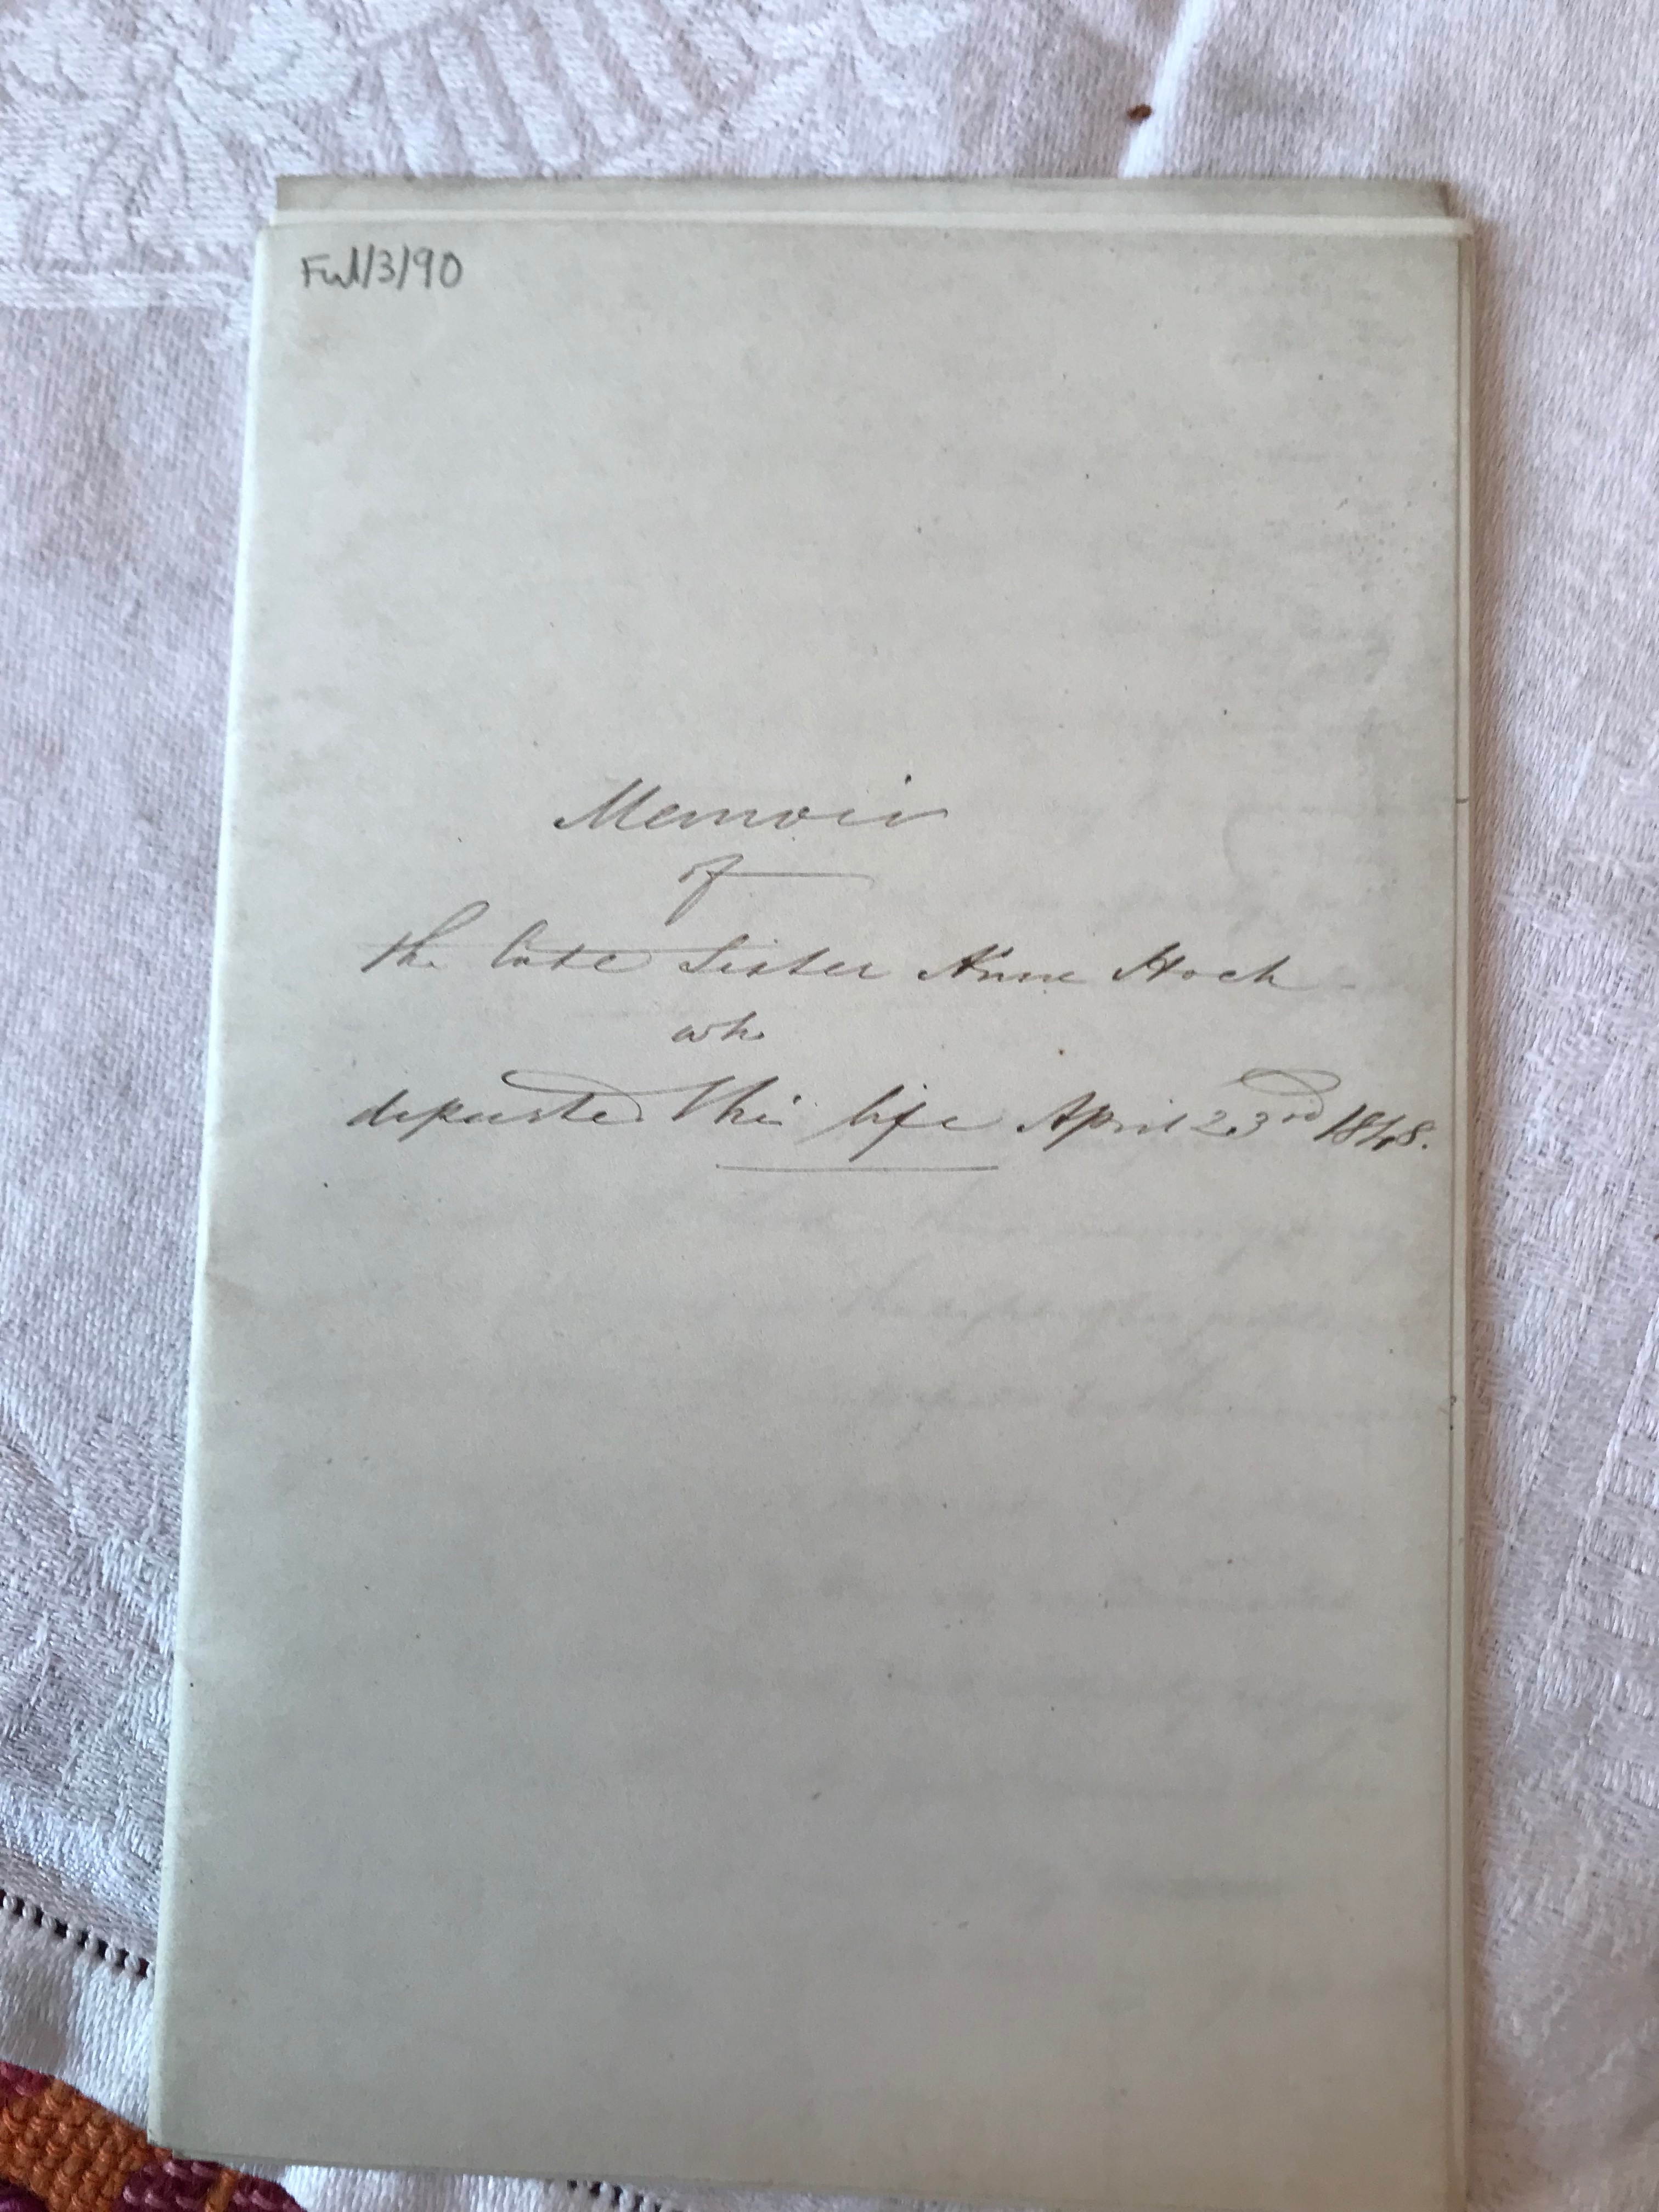 Ful/3/90
Memoir
of
the late Sister Anne Hoch
who
departed this life April 23rd 1848.